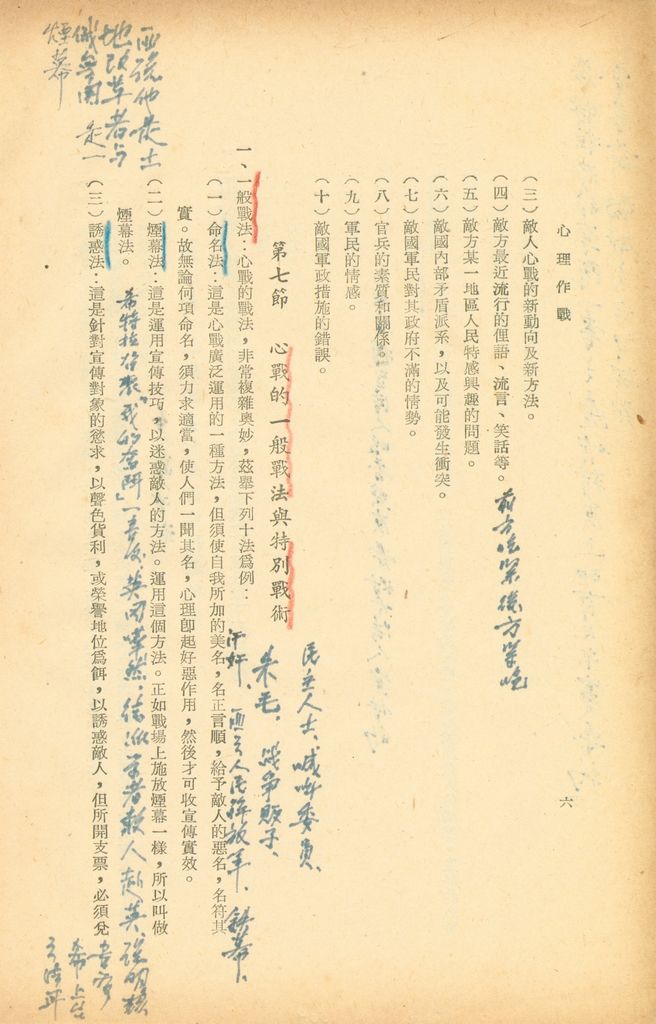 心理作戰
六
（三）敵人心戰的新動向及新方法。
（四）敵方最近流行的俚語、流言、笑話等。
前方吃緊後方緊吃
（五）敵方某一地區人民特感興趣的問題。
（六）敵國內部矛盾派系，以及可能發生衝突。
（七）敵國軍民對其政府不滿的情勢。
（八）官兵的素質和關係。
（九）軍民的情感。
（十）敵國軍政措施的錯誤。
民主人士、
委員、
第七節　心戰的一般戰法與特別戰術
朱毛、戰爭販子、
一、一般戰法：心戰的戰法，非常複雜奧妙，茲舉下列十法爲例：
汗奸、匪云人民解放軍、鉄幕、
（一）命名法：這是心戰廣泛運用的一種方法，但須使自我所加的美名，名正言順，給予敵人的惡名，名符其
實。故無論何項命名，須力求適當，使人們一聞其名，心理卽起好惡作用，然後才可收宣傳實效。
（二）煙幕法：這是運用宣傳技巧，以迷惑敵人的方法。運用這個方法。正如戰場上施放煙幕一樣，所以叫做
煙幕法。
希特拉
「我的奮鬥」一書後，英國嘩然，
學者數人赴英，說明
（三）誘惑法：這是針對宣傳對象的慾求，以聲色貨利，或榮譽地位爲餌，以誘惑敵人，但所開支票，必須兌
匪說他是土
地改革者与
煙幕